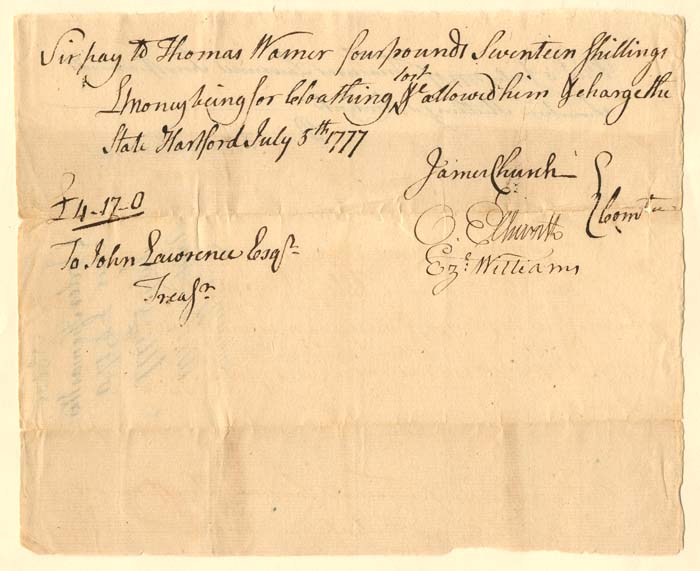 Sir pay to Thomas Warner four pounds Seventeen Shillings
LMoney being for Cloathing lost allowed him & charge the
State Hartford July 5th 1777
James Church
£4-17-0
O. Ellsworth
Comtee
To John Lawrence Esqr
Ezl Williams
Treasr